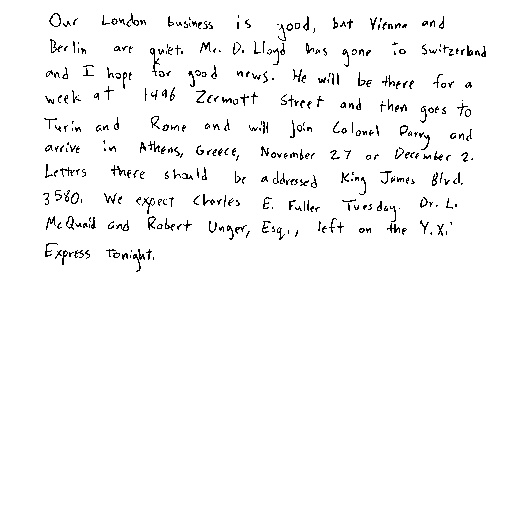 Our London business is good, but Vienna and
Berlin are quiet. Mr. D. Lloyd has gone to Switzerland
and I hope for good news. He will be there for a
week at 1496 Zermott Street and then goes to
Turin and Rome and will join Colonel Parry and
arrive in Athens, Greece, November 27 or December 2.
Letters there should be addressed King James Blvd.
3580. We expect Charles E. Fuller Tuesday. Dr. L.
McQuaid and Robert Unger, Esq., left on the Y.X.'
Express tonight.